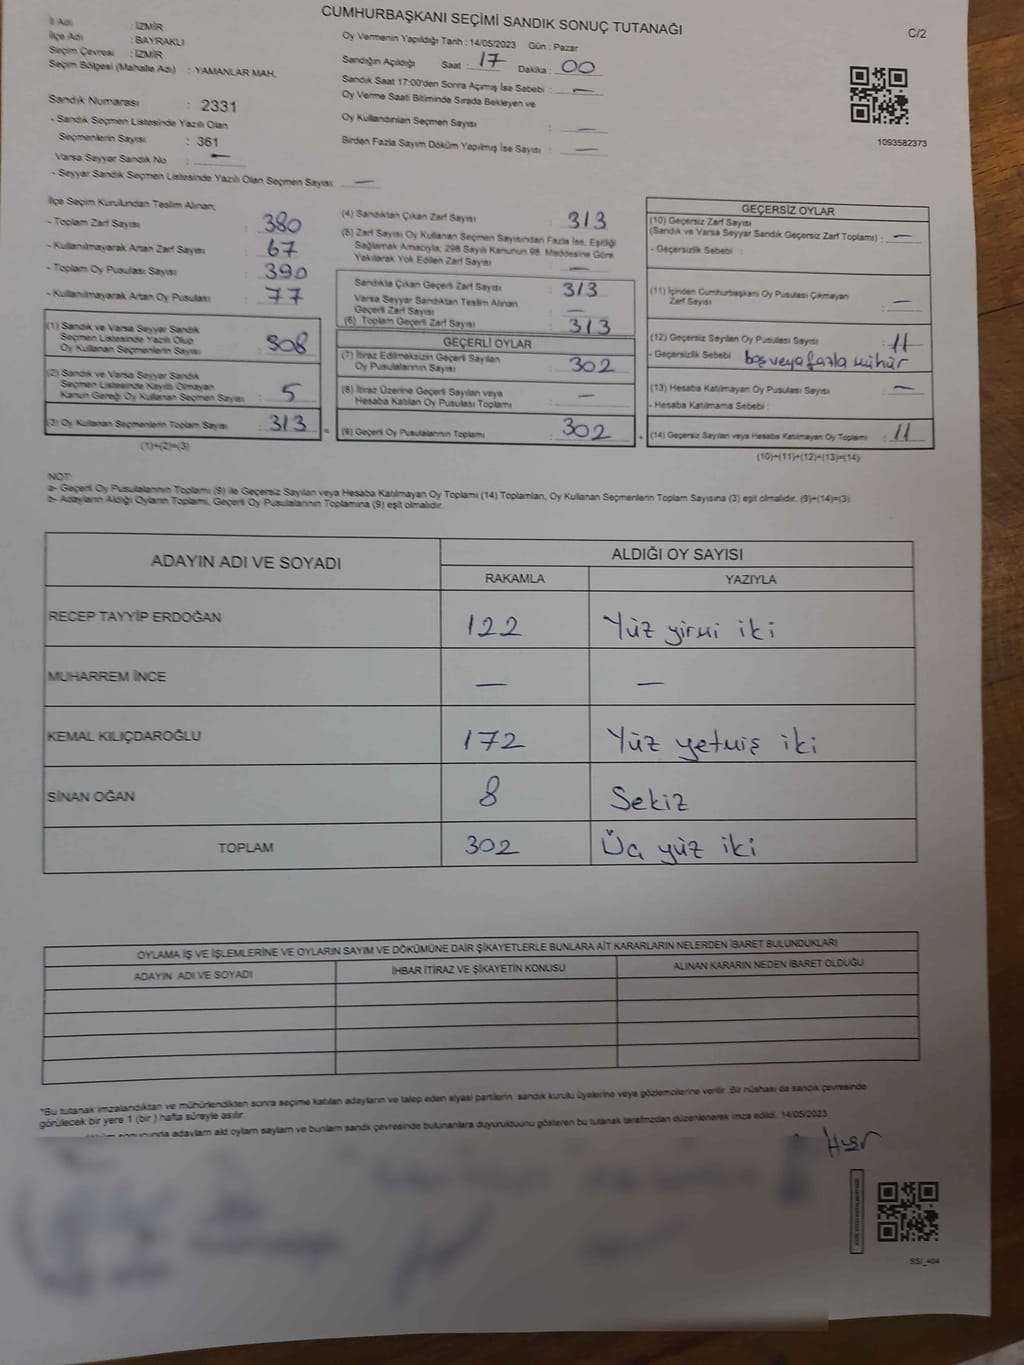 CUMHURBAŞKANI SEÇİMİ SANDIK SONUÇ TUTANAĞI
C/2
İl Adı : İZMİR
İlçe Adı : BAYRAKLI
Seçim Çevresi : İZMİR
Seçim Bölgesi (Mahalle Adı) : YAMANLAR MAH.
Sandık Numarası : 2331
- Sandık Seçmen Listesinde Yazılı Olan
Seçmenlerin Sayısı : 361
Varsa Seyyar Sandık No : —
- Seyyar Sandık Seçmen Listesinde Yazılı Olan Seçmen Sayısı : —
Oy Vermenin Yapıldığı Tarih : 14/05/2023 Gün : Pazar
Sandığın Açıldığı Saat : 17 Dakika : 00
Sandık Saat 17:00'den Sonra Açımış İse Sebebi : —
Oy Verme Saati Bitiminde Sırada Bekleyen ve
Oy Kullandırılan Seçmen Sayısı : —
Birden Fazla Sayım Döküm Yapılmış İse Sayısı : —
1093582373
İlçe Seçim Kurulundan Teslim Alınan;
- Toplam Zarf Sayısı : 380
- Kullanılmayarak Artan Zarf Sayısı : 67
- Toplam Oy Pusulası Sayısı : 390
- Kullanılmayarak Artan Oy Pusulası : 77
(1) Sandık ve Varsa Seyyar Sandık
Seçmen Listesinde Yazılı Olup
Oy Kullanan Seçmenlerin Sayısı : 308
(2) Sandık ve Varsa Seyyar Sandık
Seçmen Listesinde Kayıtlı Olmayan
Kanun Gereği Oy Kullanan Seçmen Sayısı : 5
(3) Oy Kullanan Seçmenlerin Toplam Sayısı : 313
(1)+(2)=(3)
(4) Sandıktan Çıkan Zarf Sayısı : 313
(5) Zarf Sayısı Oy Kullanan Seçmen Sayısından Fazla İse, Eşitliği
Sağlamak Amacıyla, 298 Sayılı Kanunun 98. Maddesine Göre
Yakılarak Yok Edilen Zarf Sayısı : —
Sandıkta Çıkan Geçerli Zarf Sayısı : 313
Varsa Seyyar Sandıktan Teslim Alınan
Geçerli Zarf Sayısı : —
(6) Toplam Geçerli Zarf Sayısı : 313
GEÇERLİ OYLAR
(7) İtiraz Edilmeksizin Geçerli Sayılan
Oy Pusulalarının Sayısı : 302
(8) İtiraz Üzerine Geçerli Sayılan veya
Hesaba Katılan Oy Pusulası Toplamı : —
(9) Geçerli Oy Pusulalarının Toplamı : 302
GEÇERSİZ OYLAR
(10) Geçersiz Zarf Sayısı
(Sandık ve Varsa Seyyar Sandık Geçersiz Zarf Toplamı) : —
- Geçersizlik Sebebi :
(11) İçinden Cumhurbaşkanı Oy Pusulası Çıkmayan
Zarf Sayısı : —
(12) Geçersiz Sayılan Oy Pusulası Sayısı : 11
- Geçersizlik Sebebi : boş veya fazla mühür
(13) Hesaba Katılmayan Oy Pusulası Sayısı : —
- Hesaba Katılmama Sebebi :
(14) Geçersiz Sayılan veya Hesaba Katılmayan Oy Toplamı : 11
(10)+(11)+(12)+(13)=(14)
NOT:
a- Geçerli Oy Pusulalarının Toplamı (9) ile Geçersiz Sayılan veya Hesaba Katılmayan Oy Toplamı (14) Toplamları, Oy Kullanan Seçmenlerin Toplam Sayısına (3) eşit olmalıdır. (9)+(14)=(3)
b- Adayların Aldığı Oyların Toplamı, Geçerli Oy Pusulalarının Toplamına (9) eşit olmalıdır.
ADAYIN ADI VE SOYADI ALDIĞI OY SAYISI
RAKAMLA YAZIYLA
RECEP TAYYİP ERDOĞAN 122 Yüz yirmi iki
MUHARREM İNCE — —
KEMAL KILIÇDAROĞLU 172 Yüz yetmiş iki
SİNAN OĞAN 8 Sekiz
TOPLAM 302 Üç yüz iki
OYLAMA İŞ VE İŞLEMLERİNE VE OYLARIN SAYIM VE DÖKÜMÜNE DAİR ŞİKAYETLERLE BUNLARA AİT KARARLARIN NELERDEN İBARET BULUNDUKLARI
ADAYIN ADI VE SOYADI İHBAR İTİRAZ VE ŞİKAYETİN KONUSU ALINAN KARARIN NEDEN İBARET OLDUĞU
*Bu tutanak imzalandıktan ve mühürlendikten sonra seçime katılan adayların ve talep eden siyasi partilerin sandık kurulu üyelerine veya gözlemcilerine verilir. Bir nüshası da sandık çevresinde
görülecek bir yere 1 (bir) hafta süreyle asılır.
sonucunda adayların ald oyların sayların ve bunların sandık çevresinde bulunanlara duyurulduunu gösteren bu tutanak tarafımızdan düzenlenerek imza edildi. 14/05/2023
SSI_404